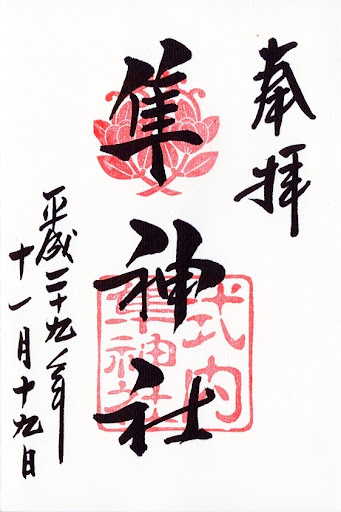 奉拝
隼神社
式内
隼神社
平成二十九年
十一月十九日